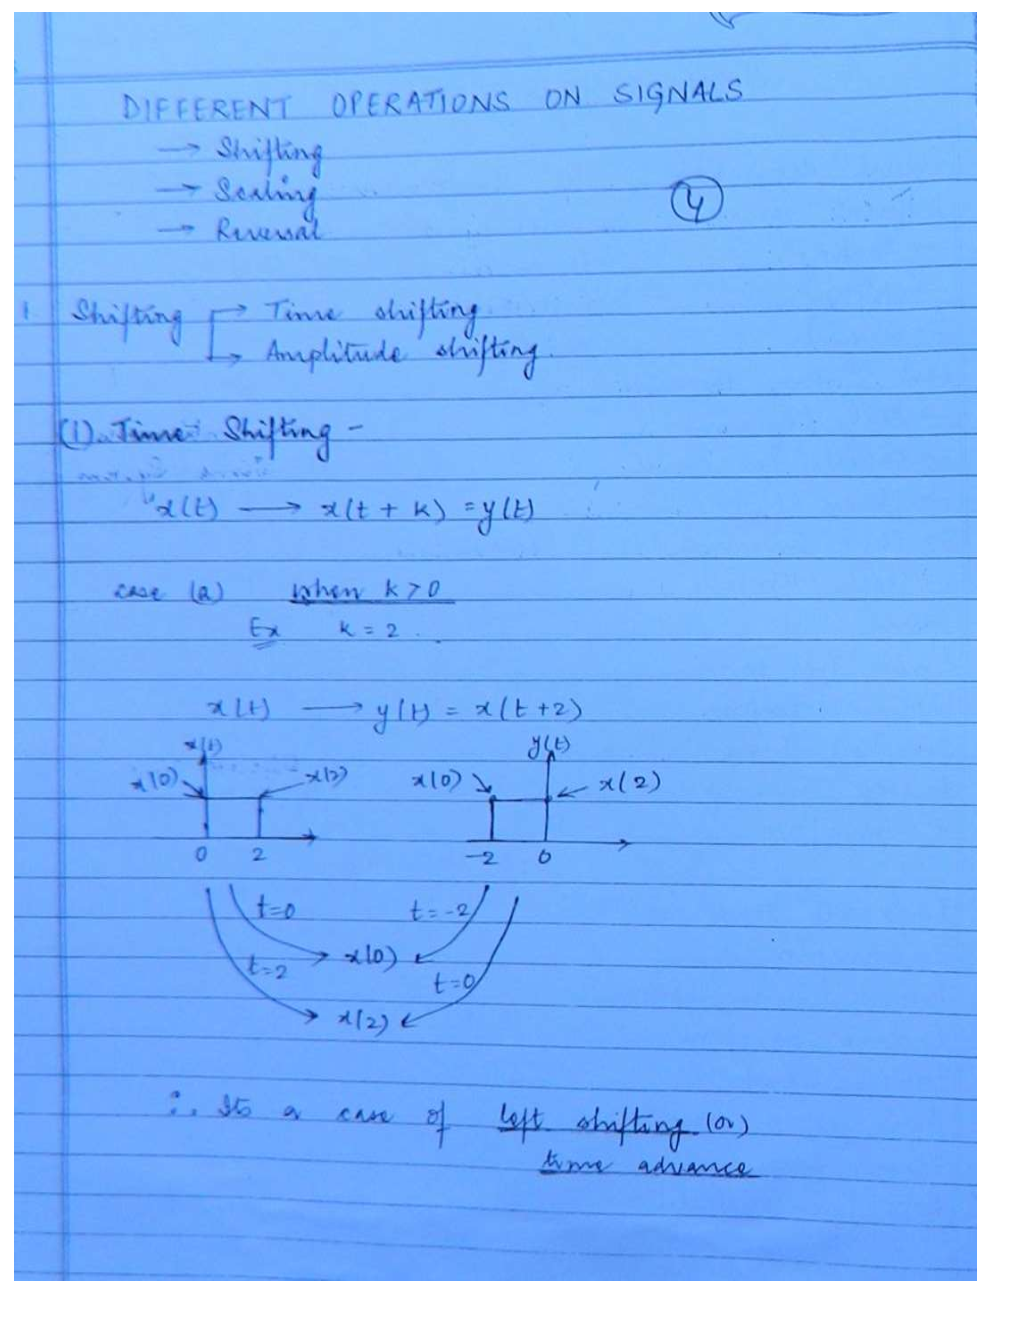 DIFFERENT OPERATIONS ON SIGNALS
→ Shifting
→ Scaling
→ Reversal
4
1 Shifting → Time shifting
→ Amplitude shifting.
(1). Time Shifting -
x(t) → x(t + k) = y(t)
case (a) when k > 0
Ex k = 2.
x(t) → y(t) = x(t +2)
x(t) y(t)
x(0) x(2) x(0) x(2)
0 2 -2 0
t=0 t=-2
x(0)
t=2 t=0
x(2)
∴ Its a case of left shifting (or)
time advance